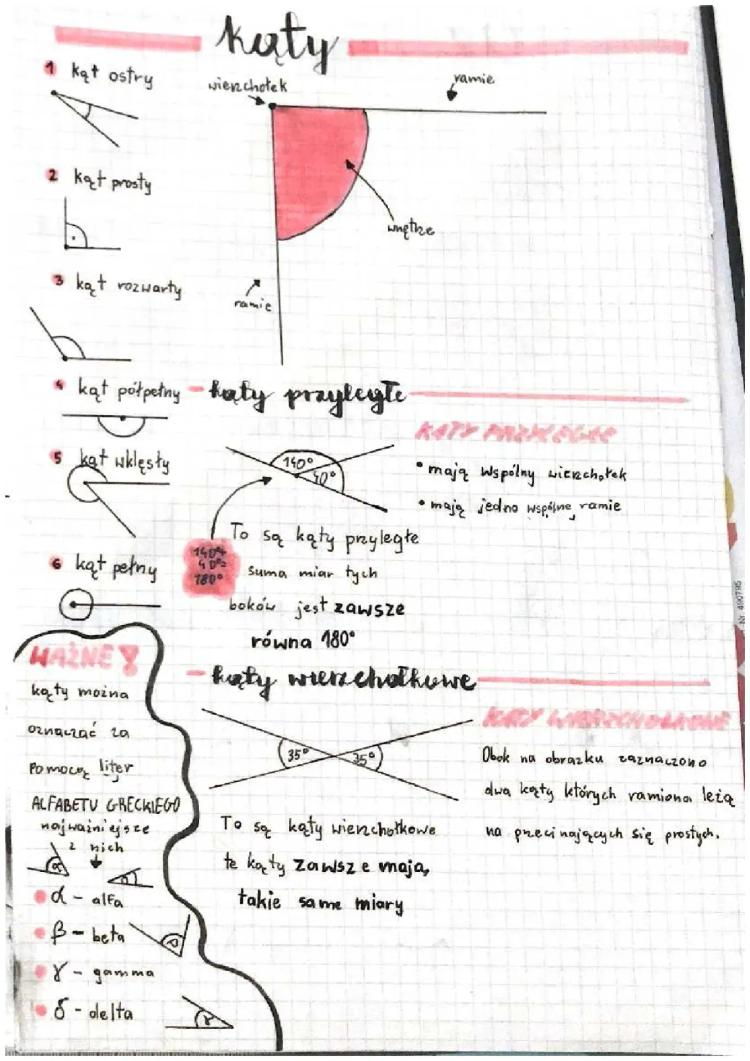 kąty
1 kąt ostry
wierzchołek
ramie
2 kąt prosty
wnętrze
3 kąt rozwarty
ramie
4 kąt półpełny
kąty przyległe
5 kąt wklęsły
140°
40°
KĄTY PRZYLEGŁE
• mają wspólny wierzchołek
• mają jedno wspólne ramie
6 kąt pełny
140°+
40°=
180°
To są kąty przyległe
suma miar tych
boków jest zawsze
równa 180°
WAŻNE!
kąty można
oznaczać za
pomocą liter
ALFABETU GRECKIEGO
najważniejsze
z nich
α
α - alfa
β - beta
γ - gamma
δ - delta
γ
kąty wierzchołkowe
35°
35°
KĄTY WIERZCHOŁKOWE
Obok na obrazku zaznaczono
dwa kąty których ramiona leżą
na przecinających się prostych.
To są kąty wierzchołkowe
te kąty zawsze mają
takie same miary
Nr. 490795